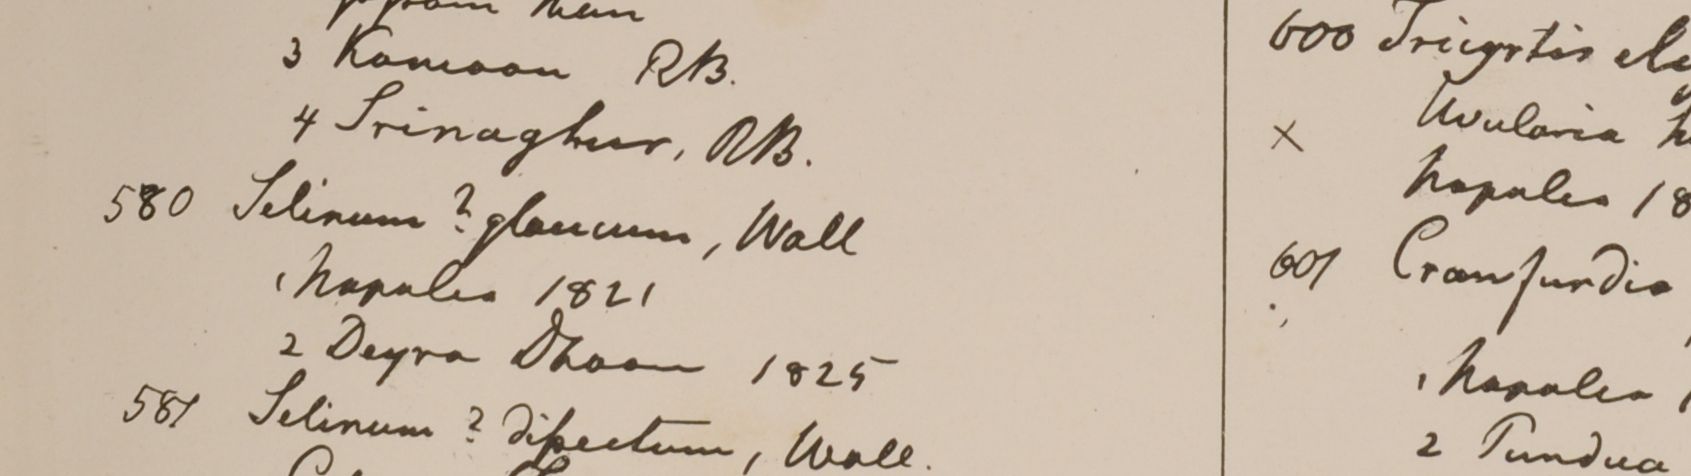 3 Kamaon RB.
4 Srinaghur, RB.
580 Selinum ? glaucum, Wall
1 Napalia 1821
2 Deyra Dhoon 1825
581 Selinum ? dissectum, Wall.
600 Tricyrtis
× Uvularia
Napalia 18
601 Crawfurdia
1 Napalia
2 Pundua